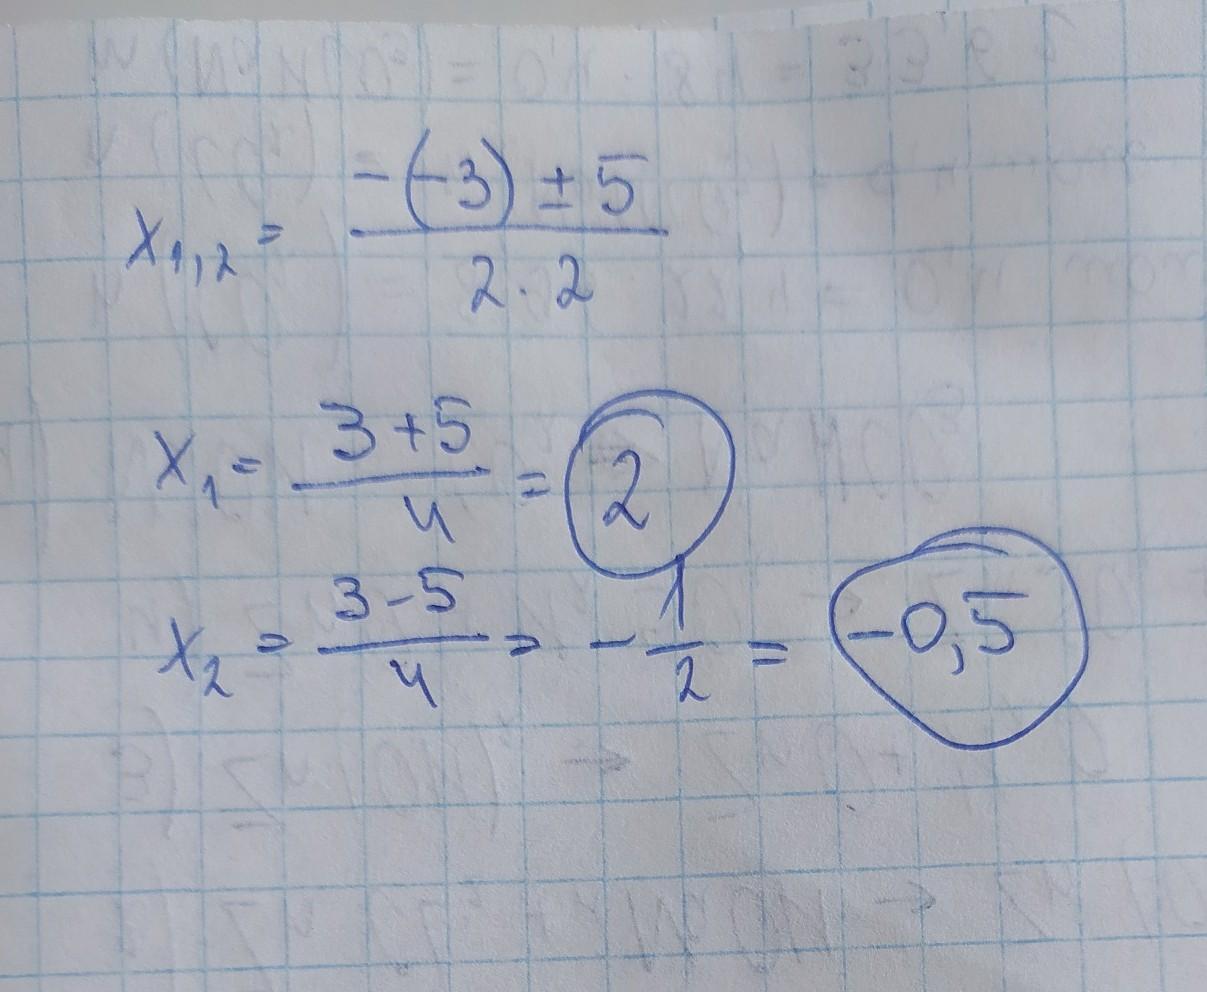 x₁,₂ = (-(-3) ± 5)/(2 · 2)
x₁ = (3+5)/4 = 2
x₂ = (3-5)/4 = -1/2 = -0,5